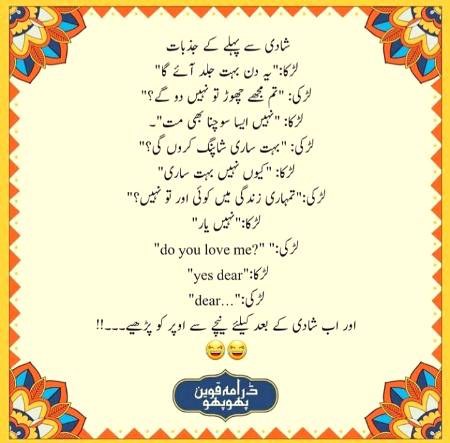 شادی سے پہلے کے جذبات
لڑکا:"یہ دن بہت جلد آئے گا"
لڑکی: "تم مجھے چھوڑ تو نہیں دو گے؟"
لڑکا: "نہیں ایسا سوچنا بھی مت"۔
لڑکی: "بہت ساری شاپنگ کروں گی؟"
لڑکا: "کیوں نہیں بہت ساری"
لڑکی:"تمہاری زندگی میں کوئی اور تو نہیں؟"
لڑکا:"نہیں یار"
لڑکی:" "do you love me?"
لڑکا:"yes dear"
لڑکی:"...dear"
اور اب شادی کے بعد کیلئے نیچے سے اوپر کو پڑھیے۔۔۔!!
😄😄
ڈرامہ قوین
پھوپھو